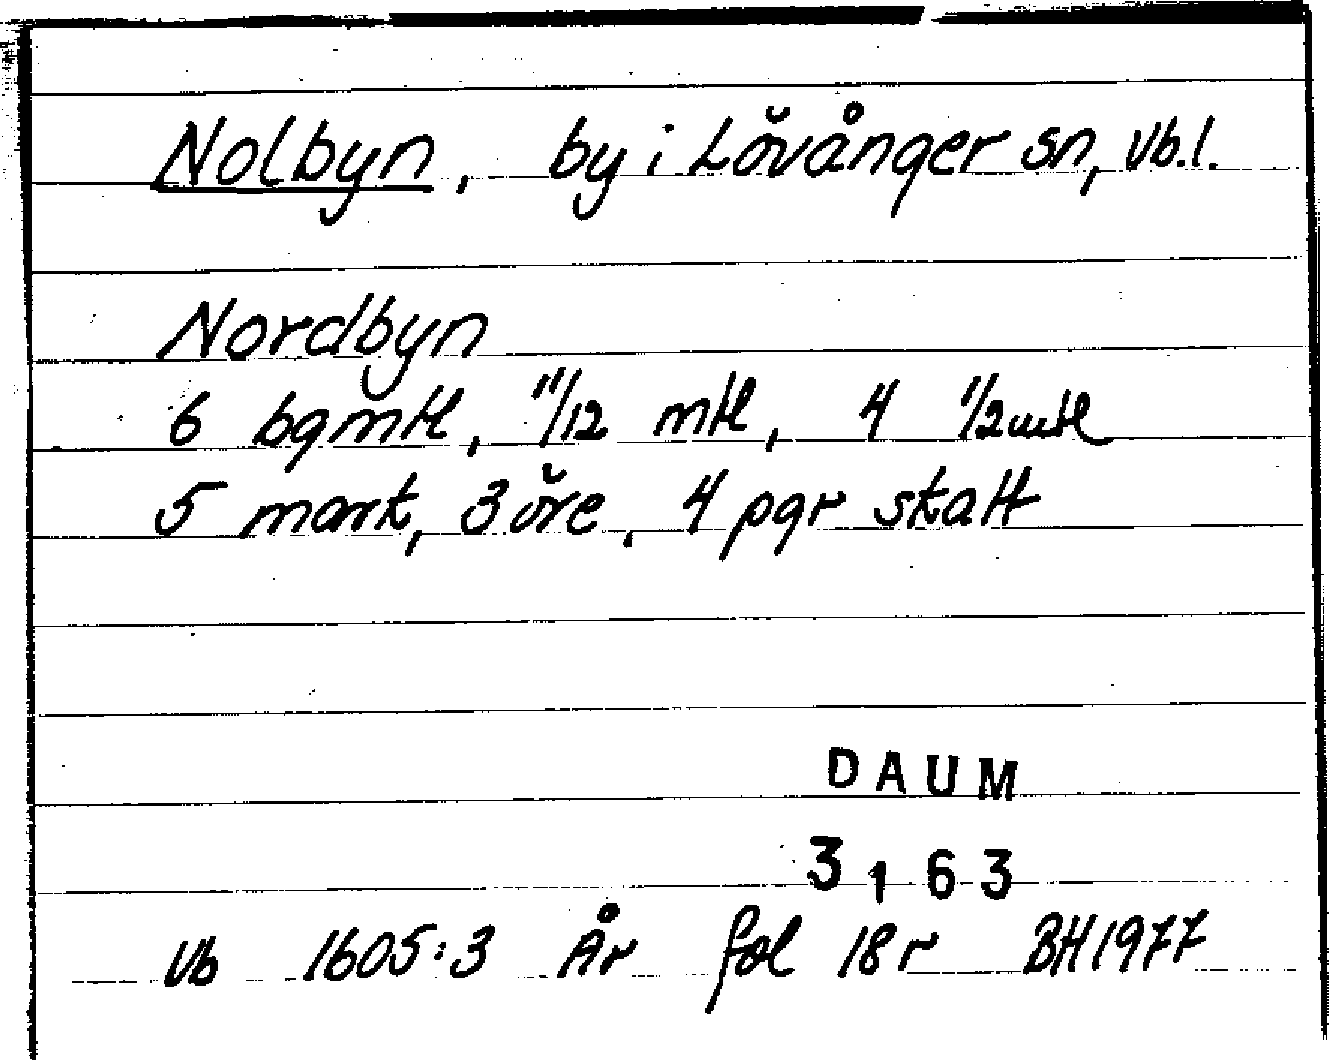 Nolbyn, by i Lövånger sn, Vb.l.
Nordbyn
6 bgmtl, 11/12 mtl, 4 1/2 mtl
5 mark, 3 öre, 4 pgr skatt
DAUM
3163
Vb 1605:3 År fol 18 r BH 1977